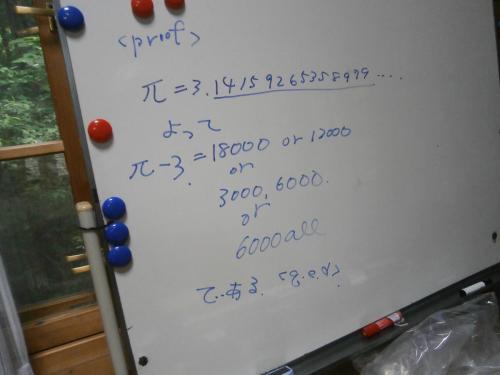 <prof>
π = 3.14159265358979....
よって
π - 3. = 18000 or 12000
or
3000, 6000.
or
6000 all
である. <q.e.d>.